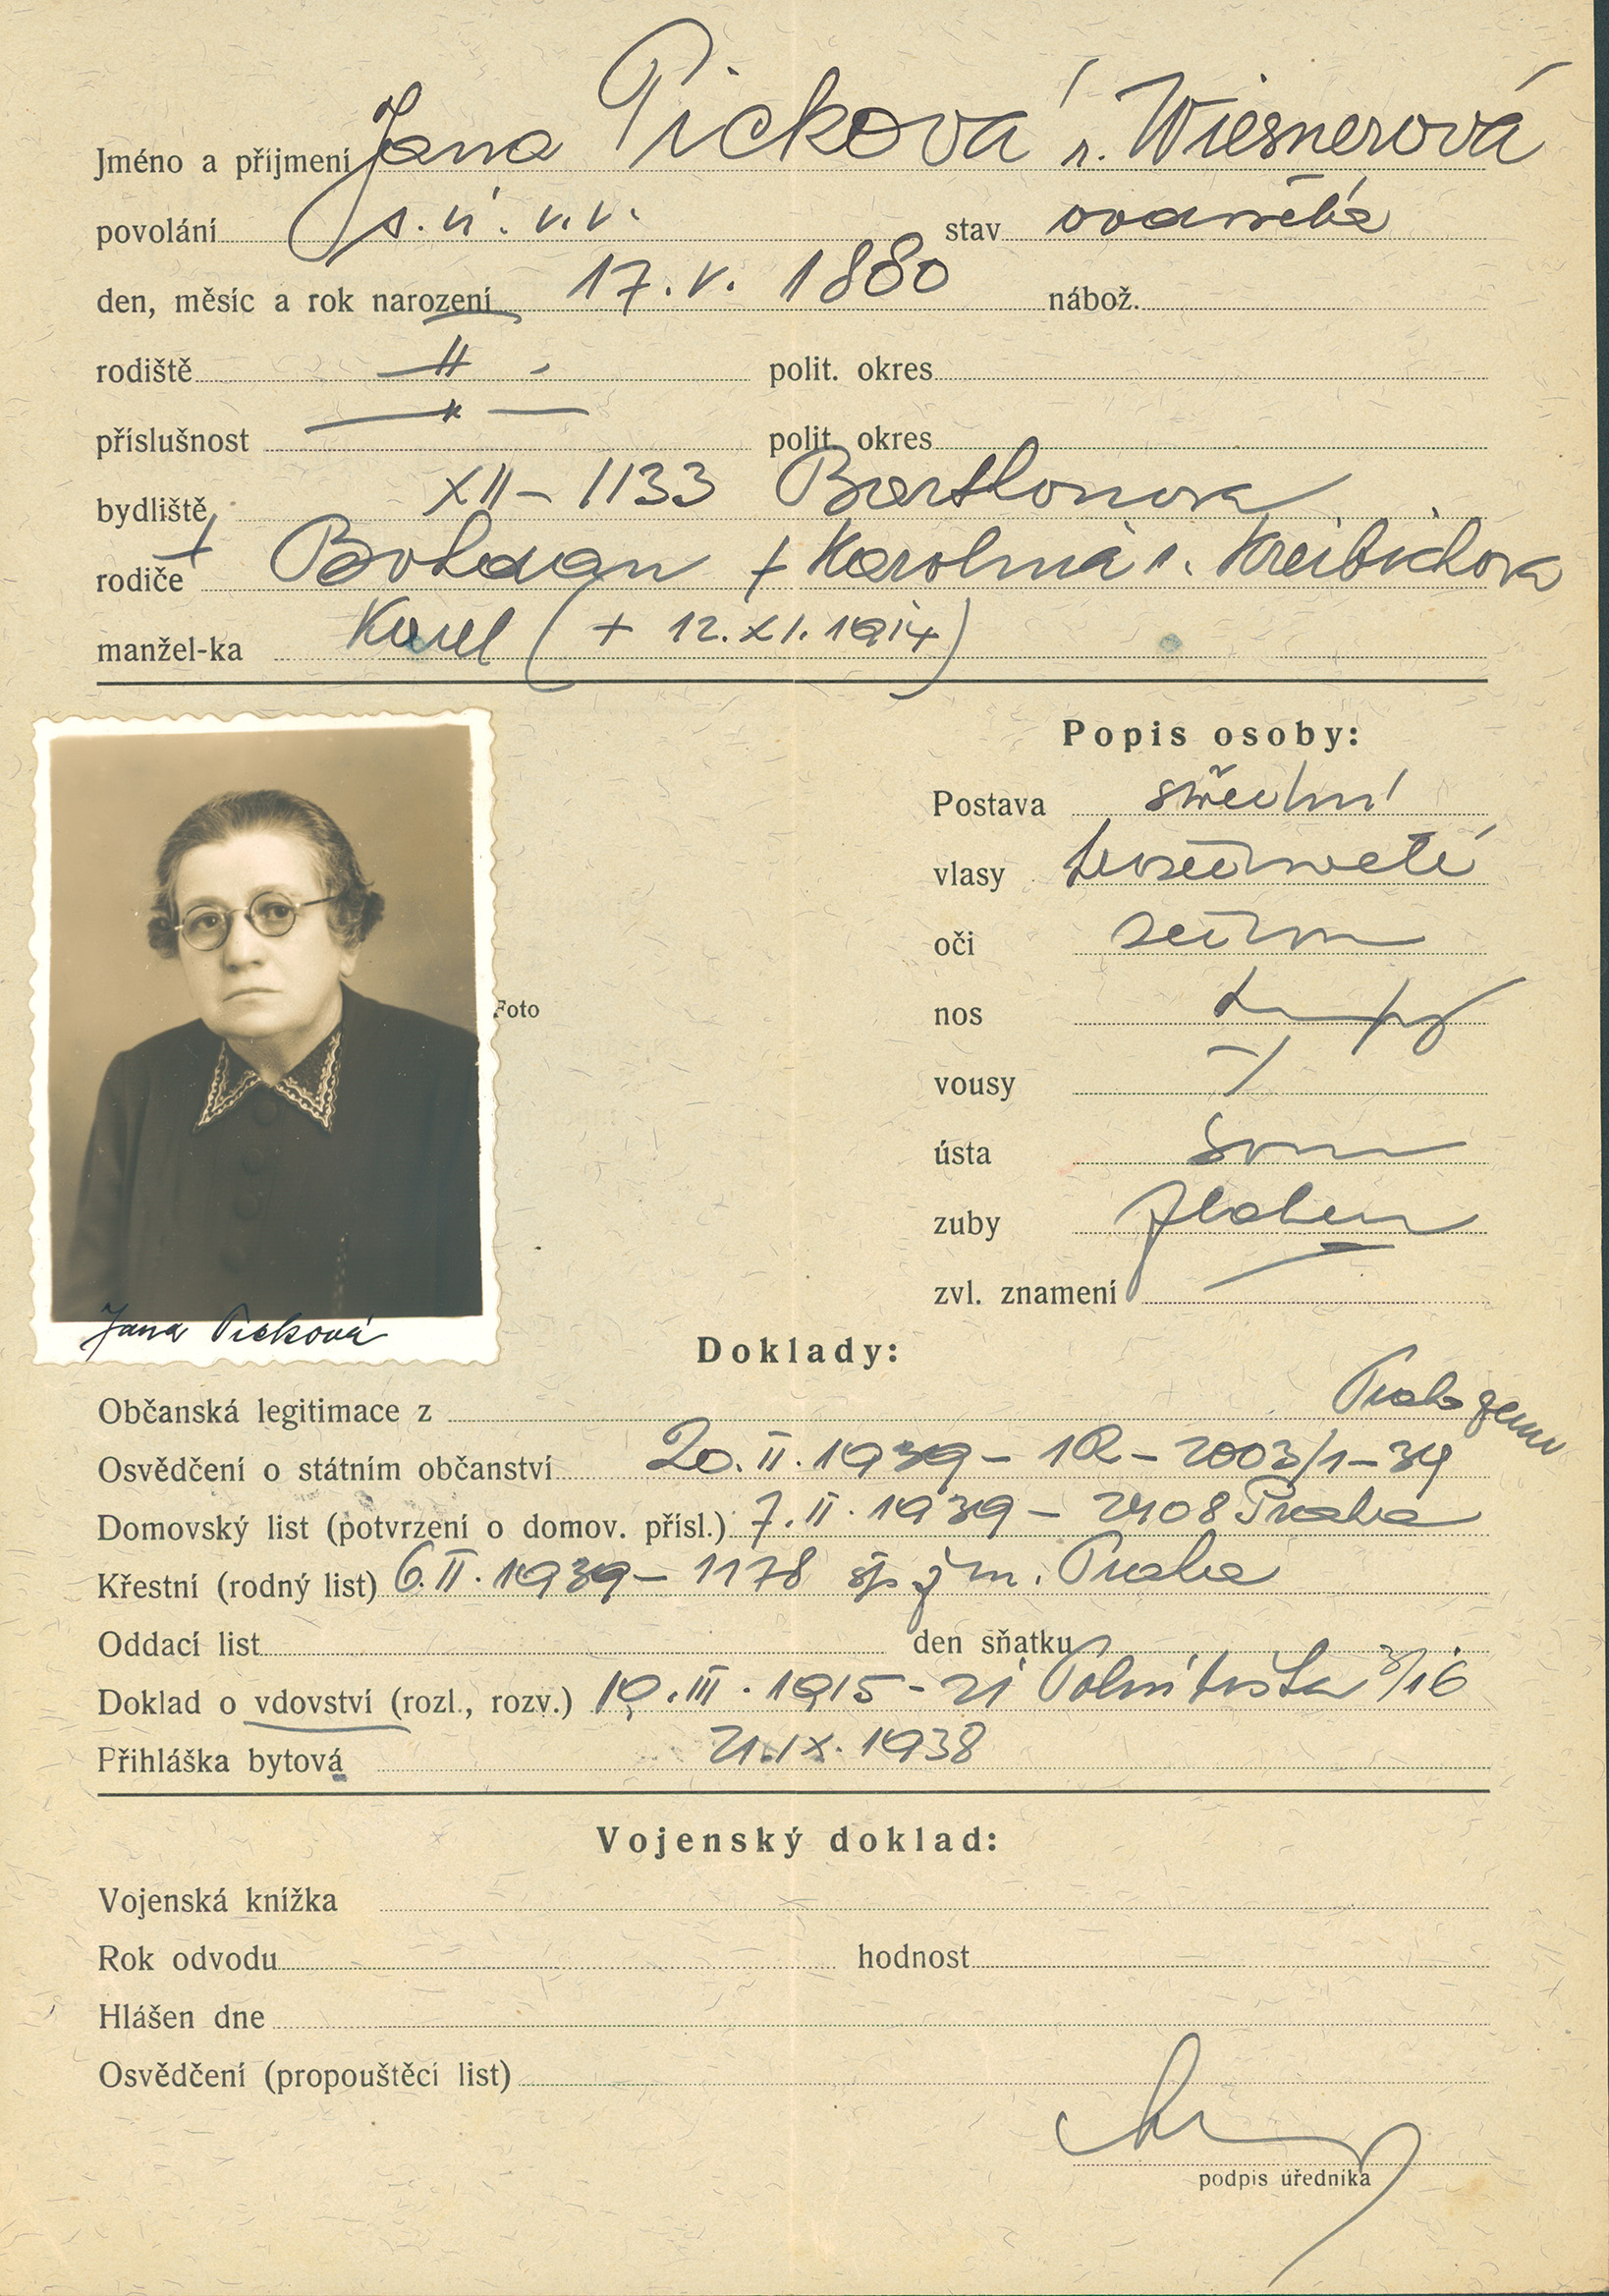 Jméno a příjmení Jana Picková r. Wiesnerová
povolání stav ovdovělá
den, měsíc a rok narození 17. V. 1880 nábož.
rodiště — " — polit. okres
příslušnost — " — polit. okres
bydliště XII – 1133
rodiče + Bohdan + Karolina r. Kreibichova
manžel-ka Karel (+ 12. XI. 1914)
Popis osoby:
Postava střední
vlasy
oči
nos
vousy
ústa
zuby
zvl. znamení
Foto
Jana Picková
Doklady:
Občanská legitimace z
Osvědčení o státním občanství 20. II. 1939 – – 2003/1–39 Praha zem
Domovský list (potvrzení o domov. přísl.) 7. II. 1939 – 2408 Praha
Křestní (rodný list) 6. II. 1939 – 1178 Praha
Oddací list den sňatku
Doklad o vdovství (rozl., rozv.) 19. III. 1915 – 21
Přihláška bytová 21. IX. 1938
Vojenský doklad:
Vojenská knížka
Rok odvodu hodnost
Hlášen dne
Osvědčení (propouštěcí list)
podpis úředníka